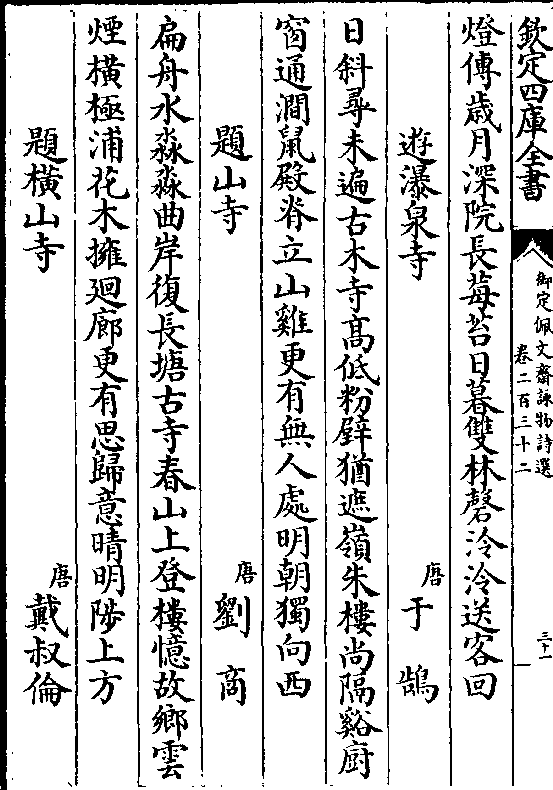 欽定四庫全書
御定佩文齋詠物詩選
卷二百三十二
三十一
燈傳歲月深院長莓苔日暮雙林磬泠泠送客回
遊瀑泉寺
唐
于鵠
日斜尋未遍古木寺髙低粉壁猶遮嶺朱樓尚隔谿厨
窗通澗鼠殿脊立山雞更有無人處明朝獨向西
題山寺
唐
劉商
扁舟水淼淼曲岸復長塘古寺春山上登樓憶故鄉雲
煙橫極浦花木擁廻廊更有思歸意晴明陟上方
題橫山寺
唐
戴叔倫